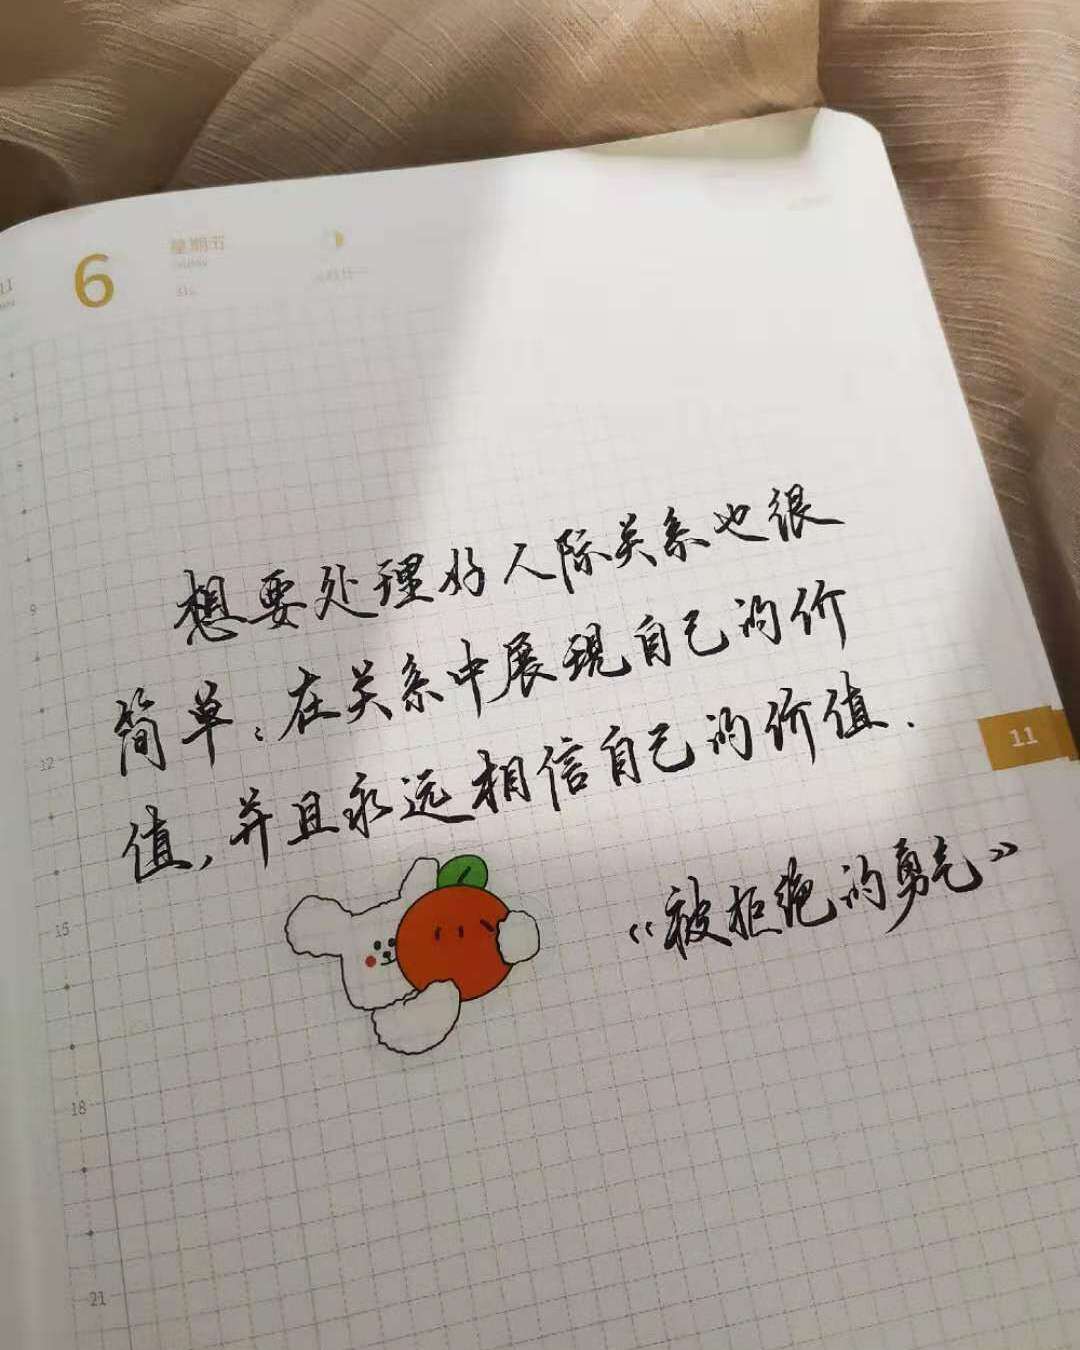 11
6
星期五
想要处理好人际关系也很
简单：在关系中展现自己的价
值，并且永远相信自己的价值.
《被拒绝的勇气》
11
9
12
15
18
21